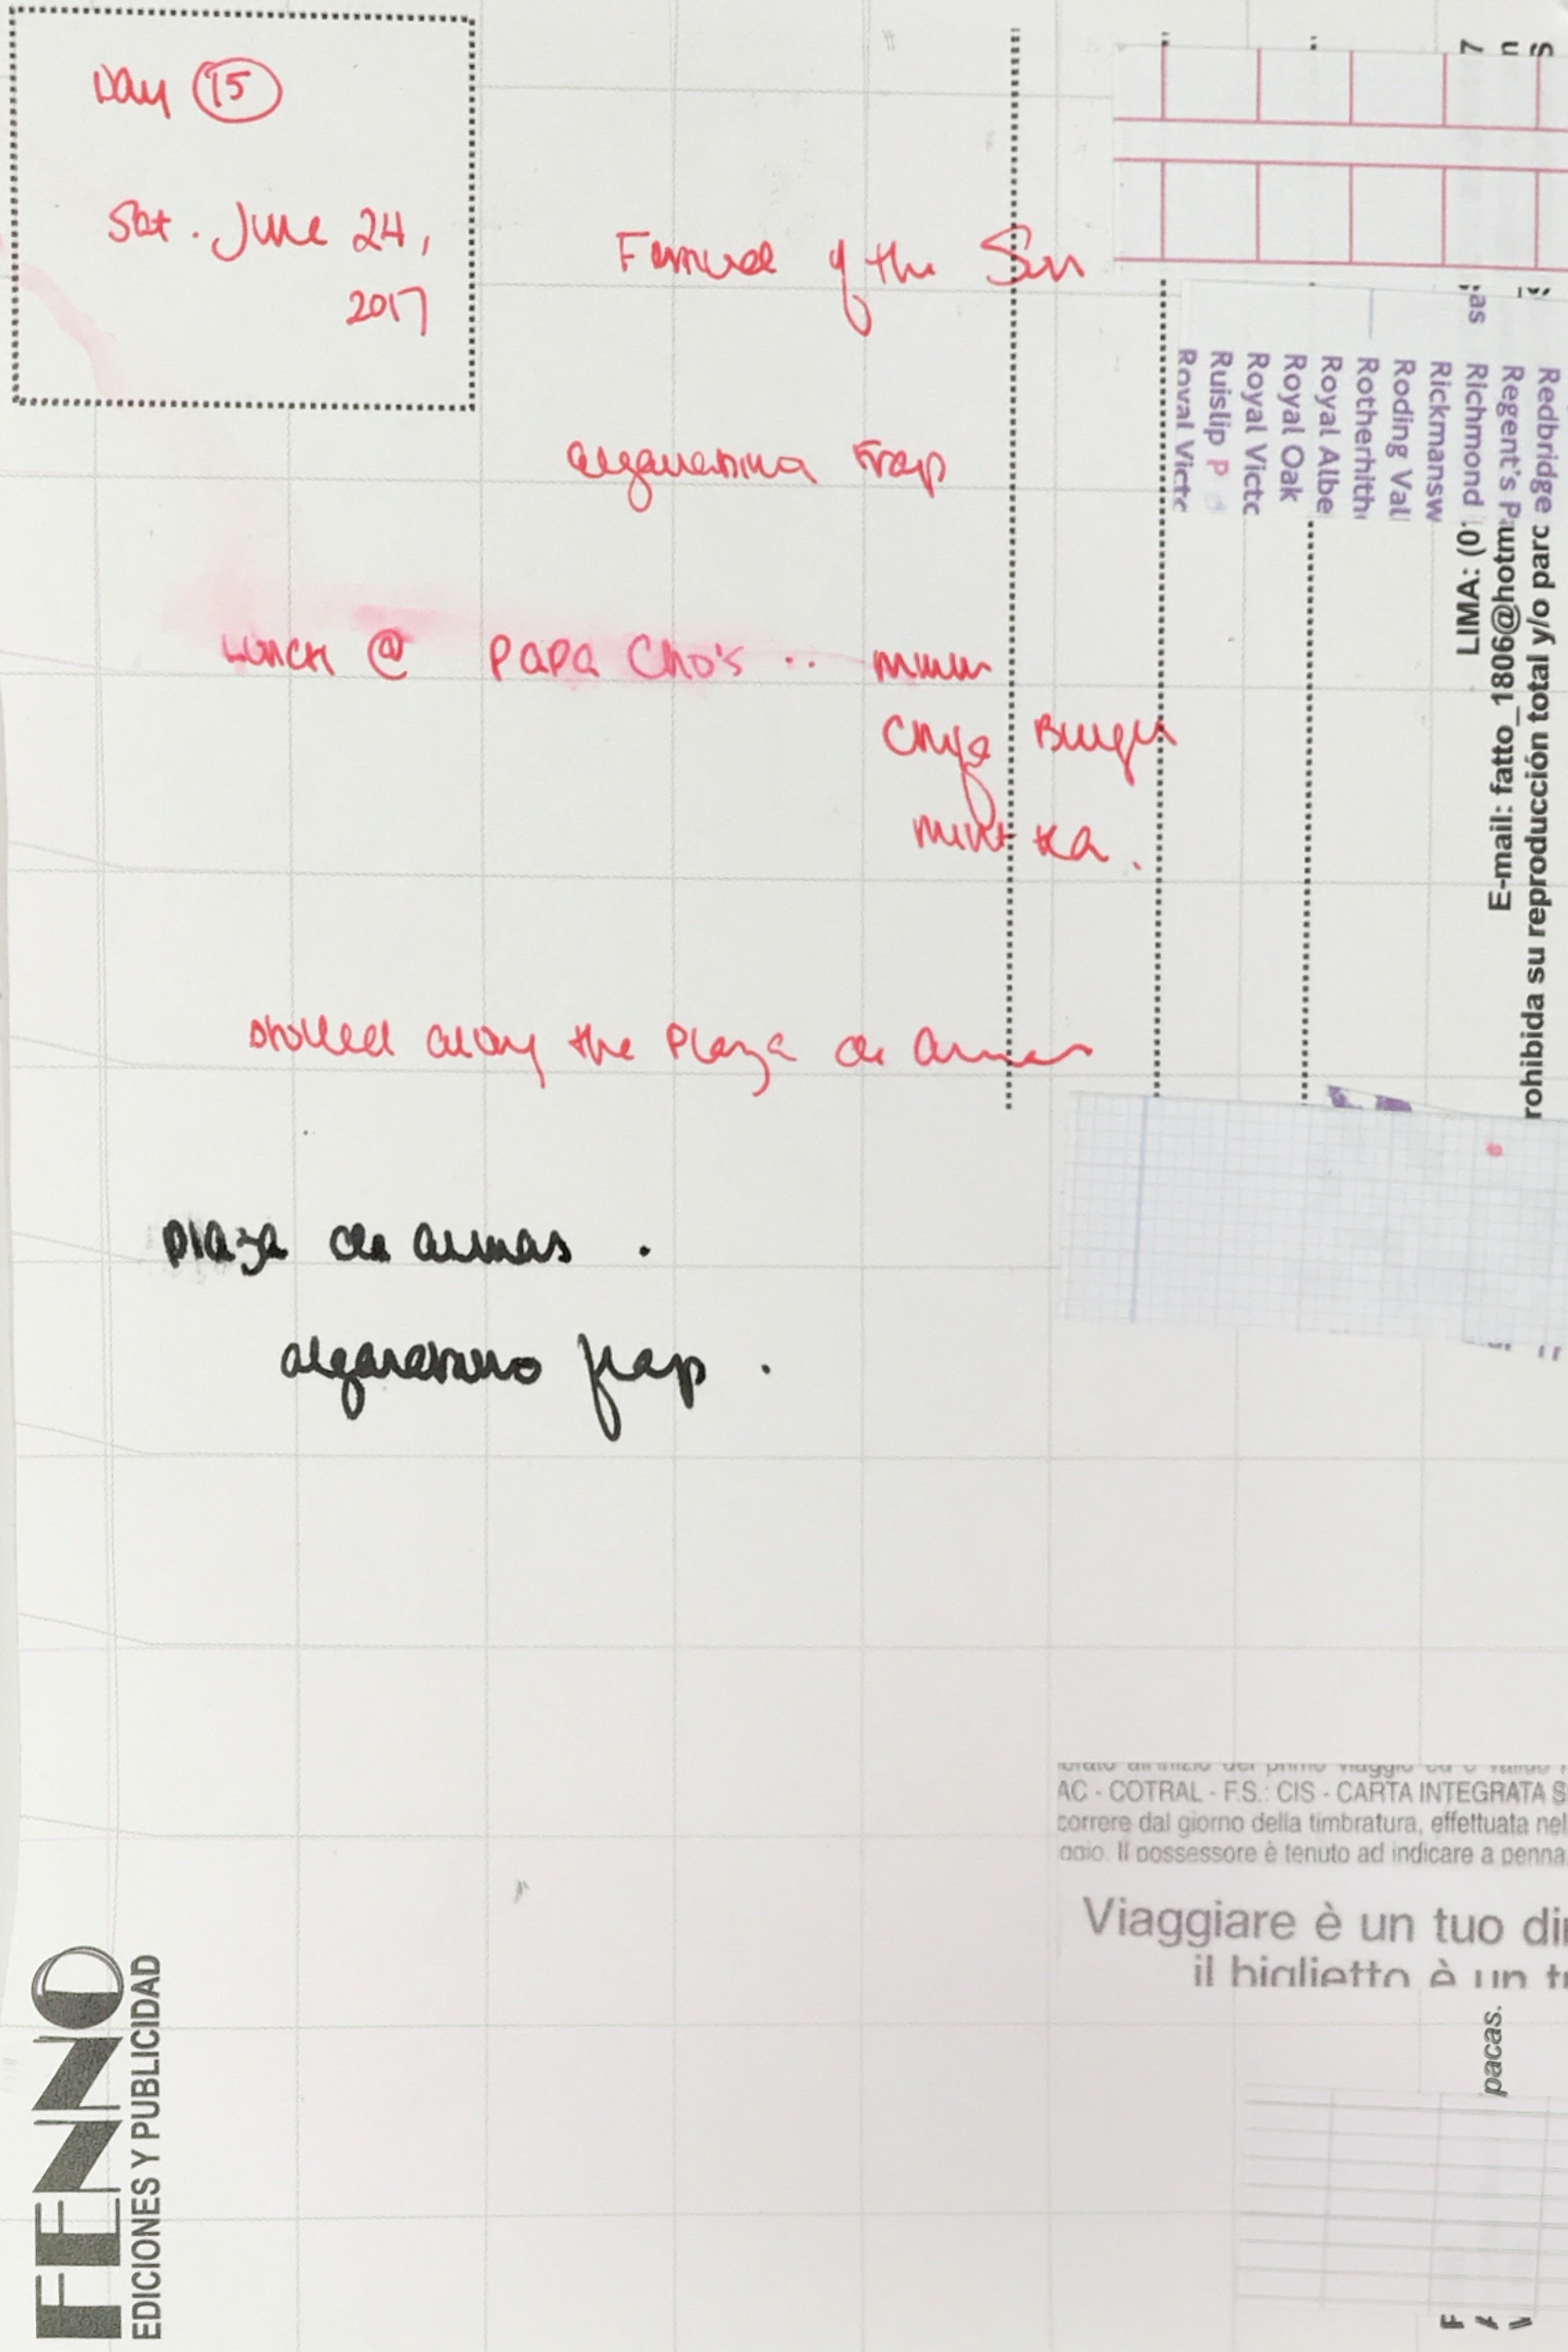 Day 15
Sat. June 24,
2017
Festival of the Sun
algarrobina Frap
Lunch @ PAPA Cho's .. mmm
Burger
mint tea.
strolled along the Plaza de Armas
plaza de armas .
algarrobino frap .
7
n
s
as
Redbridge
Regent's P
Richmond
Rickmansw
Roding Val
Rotherhith
Royal Albe
Royal Oak
Royal Victc
Ruislip P
Royal Victc
LIMA: (0
E-mail: fatto_1806@hotm
rohibida su reproducción total y/o parc
AC - COTRAL - F.S.: CIS - CARTA INTEGRATA S
correre dal giorno della timbratura, effettuata nel
ggio. Il possessore è tenuto ad indicare a penna
Viaggiare è un tuo dir
il biglietto è un t
pacas.
FENNO
EDICIONES Y PUBLICIDAD